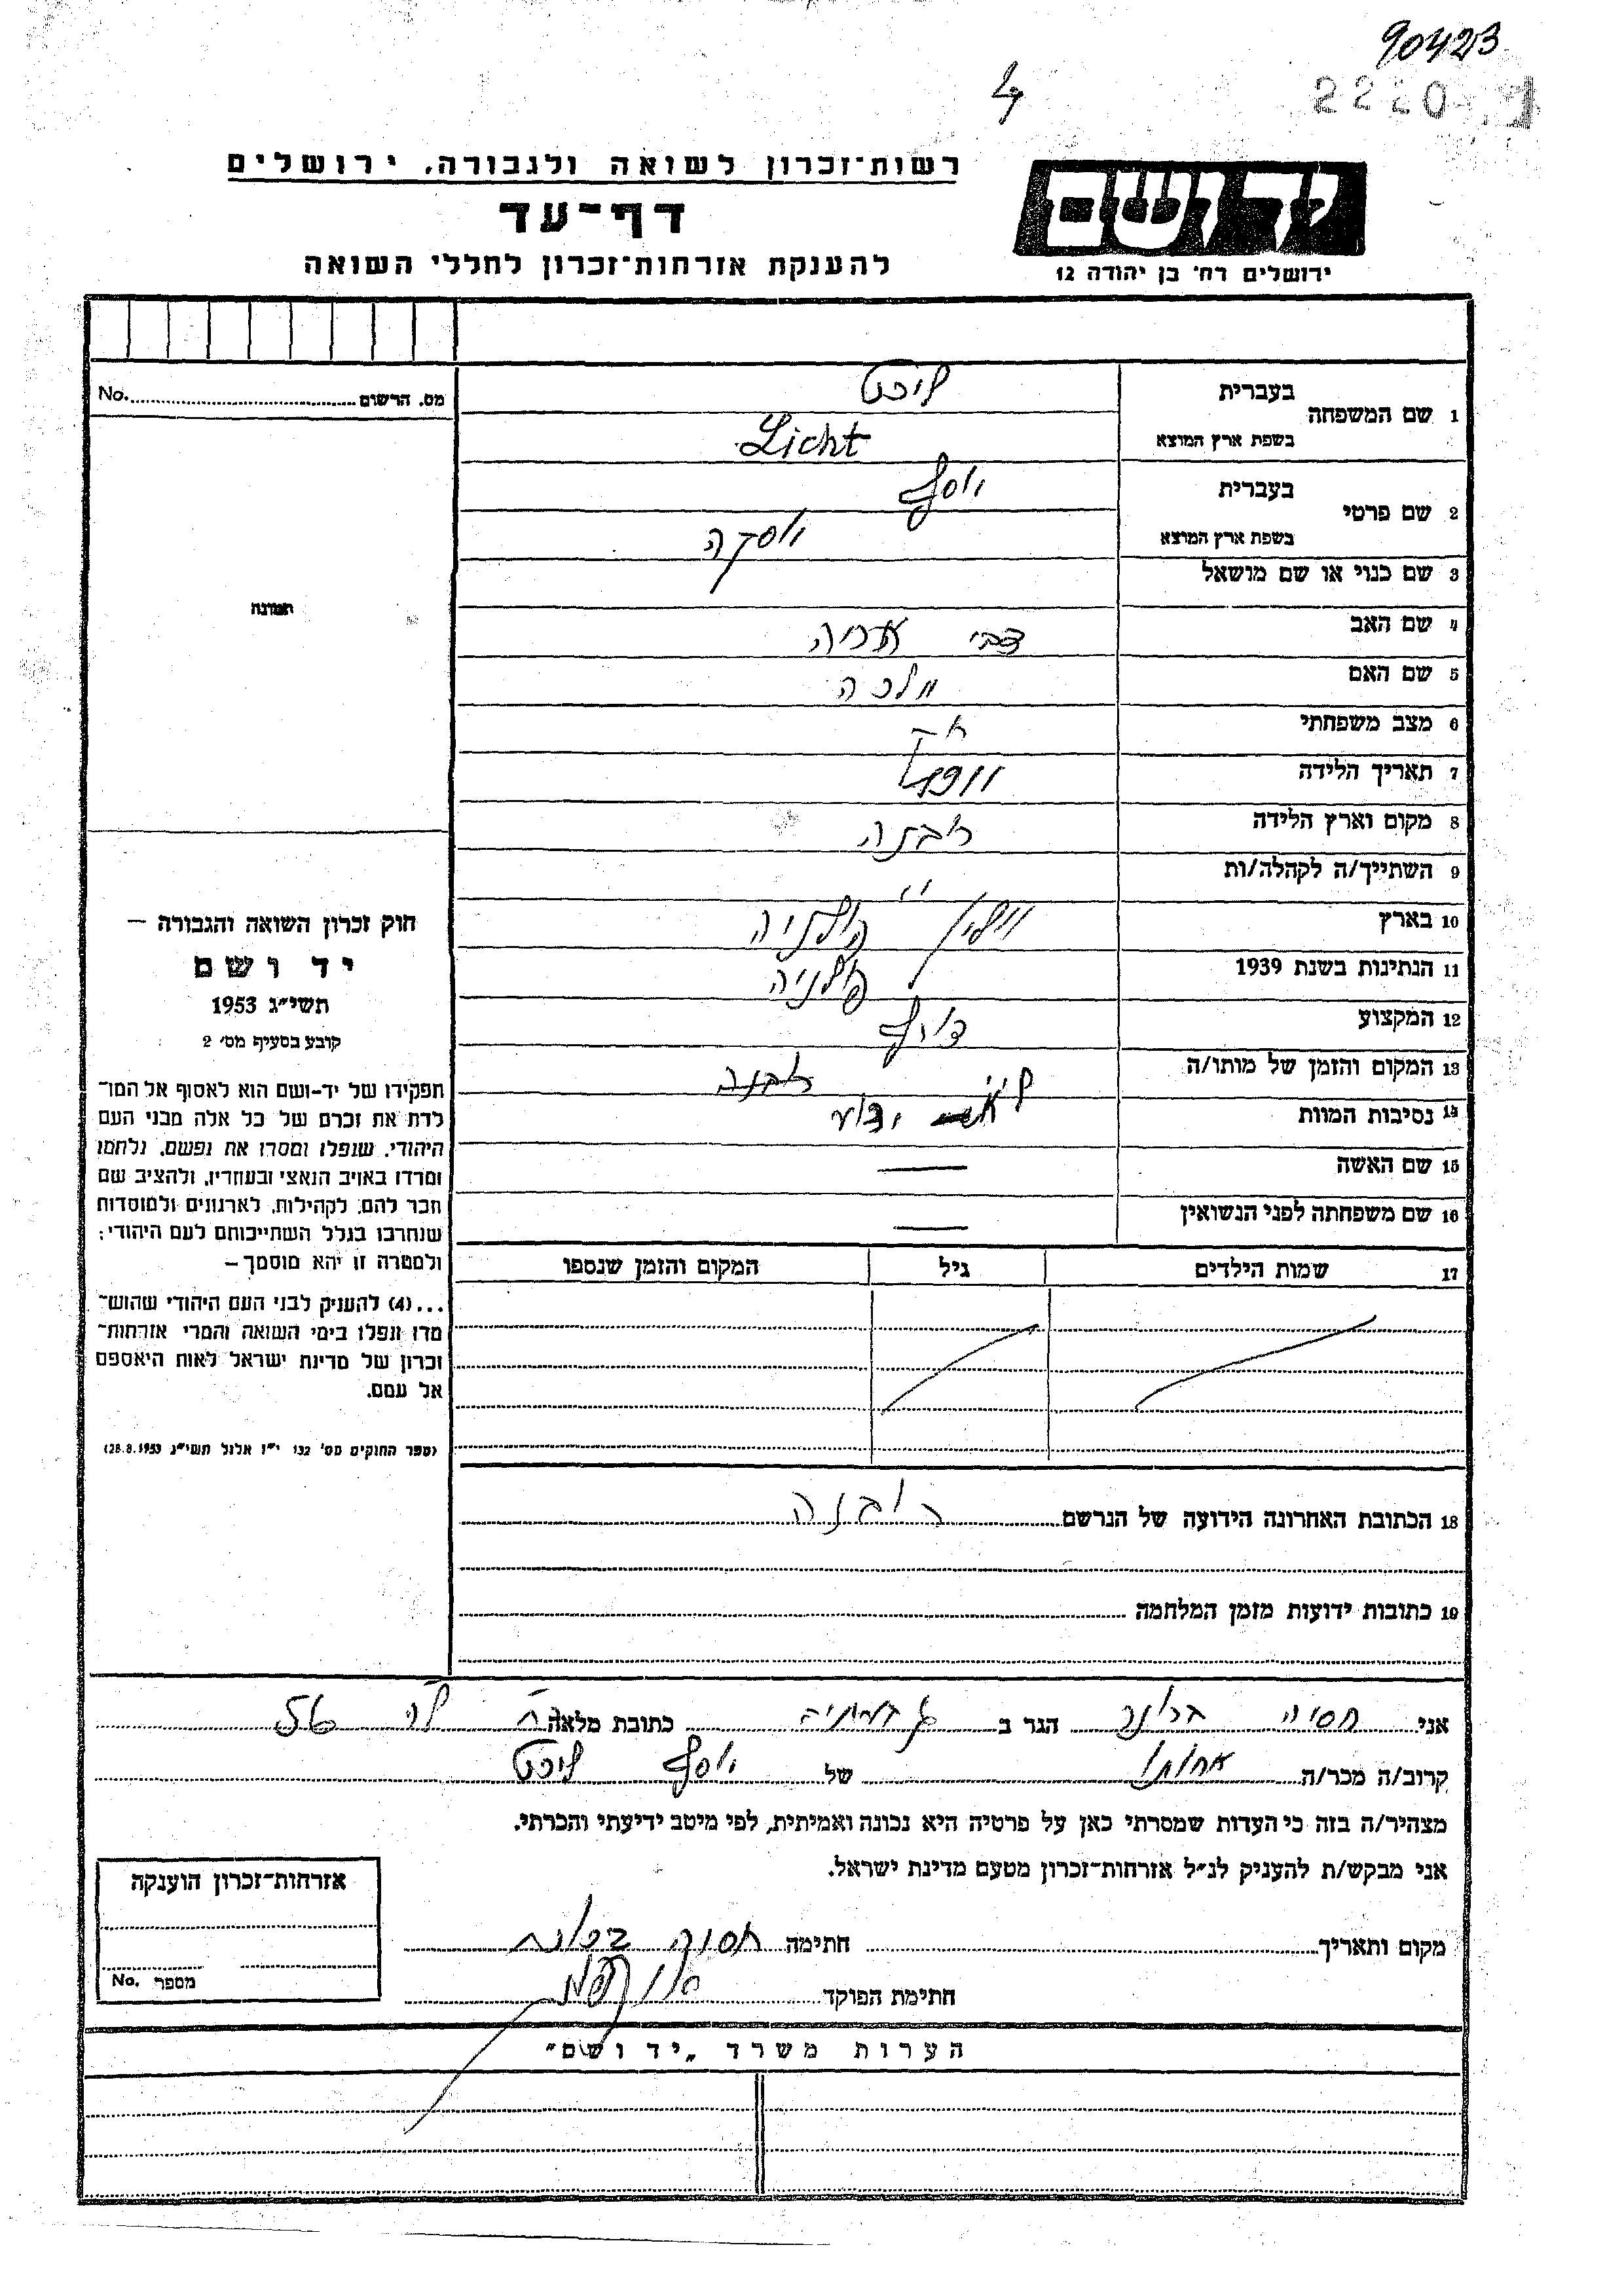 90423
2220
רשות־זכרון לשואה ולגבורה, ירושלים
דף־עד
להענקת אזרחות־זכרון לחללי השואה
יד ושם
ירושלים רח' בן יהודה 12
No. מס. הרשום
תמונה
1 שם המשפחה בעברית ליכט
בשפת ארץ המוצא Licht
2 שם פרטי בעברית יוסף
בשפת ארץ המוצא יוסקה
3 שם כנוי או שם מושאל
4 שם האב צבי אריה
5 שם האם מלכה
6 מצב משפחתי רק
7 תאריך הלידה
8 מקום וארץ הלידה רובנה
9 השתייך/ה לקהלה/ות "
10 בארץ ווולין פולניה
11 הנתינות בשנת 1939 פולניה
12 המקצוע
13 המקום והזמן של מותו/ה רובנה
14 נסיבות המוות לא ידוע
15 שם האשה —
16 שם משפחתה לפני הנשואין —
17 שמות הילדים גיל המקום והזמן שנספו
18 הכתובת האחרונה הידועה של הנרשם רובנה
19 כתובות ידועות מזמן המלחמה
חוק זכרון השואה והגבורה —
יד ושם
תשי"ג 1953
קובע בסעיף מס' 2
תפקידו של יד-ושם הוא לאסוף אל המו־
לדת את זכרם של כל אלה מבני העם
היהודי, שנפלו ומסרו את נפשם, נלחמו
ומרדו באויב הנאצי ובעוזריו, ולהציב שם
וזכר להם, לקהילות, לארגונים ולמוסדות
שנחרבו בגלל השתייכותם לעם היהודי;
ולמטרה זו יהא מוסמך —
...(4) להעניק לבני העם היהודי שהוש־
מדו ונפלו בימי השואה והמרי אזרחות־
זכרון של מדינת ישראל לאות היאספם
אל עמם.
(ספר החוקים מס' 132 י"ז אלול תשי"ג 28.8.1953)
אני חסיה הגר ב כתובת מלאה 56
קרוב/ה מכר/ה אחותו של יוסף ליכט
מצהיר/ה בזה כי העדות שמסרתי כאן על פרטיה היא נכונה ואמיתית, לפי מיטב ידיעתי והכרתי.
אני מבקש/ת להעניק לנ"ל אזרחות־זכרון מטעם מדינת ישראל.
מקום ותאריך חתימה חסיה
חתימת הפוקד
אזרחות־זכרון הוענקה
No. מספר
הערות משרד „יד ושם"